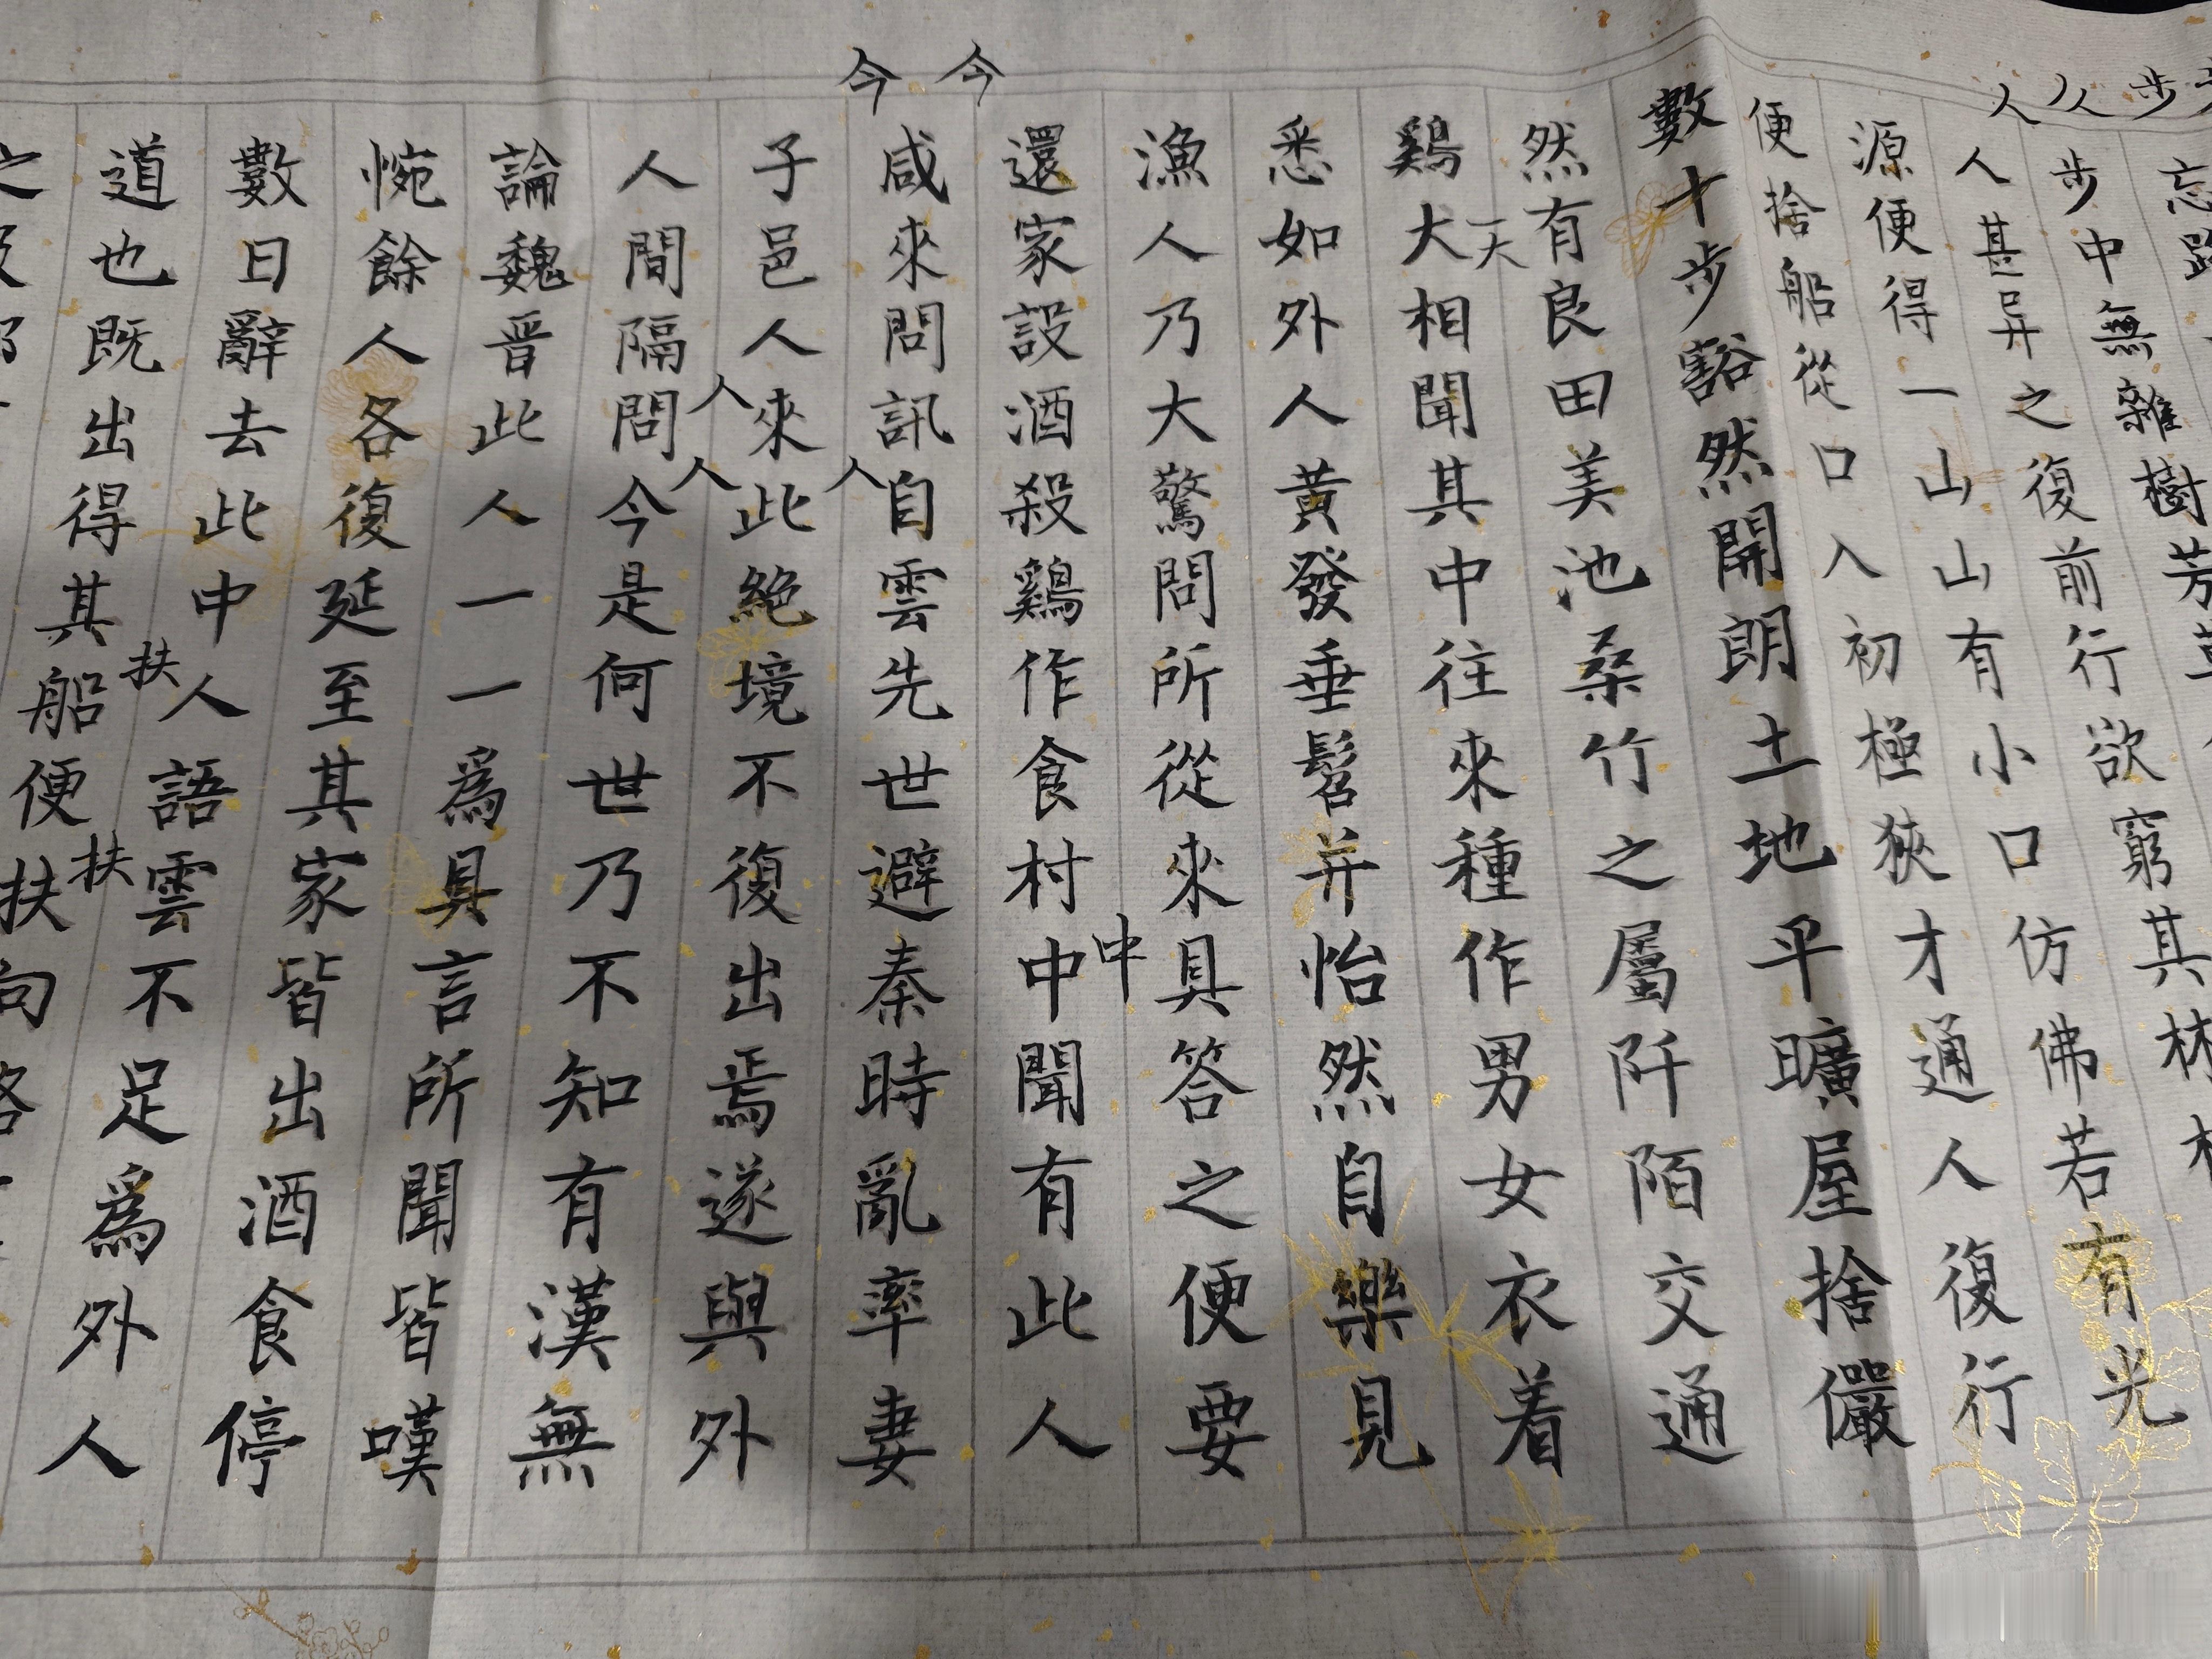 忘路
步中無雜樹芳
人甚异之復前行欲窮其林
源便得一山山有小口仿佛若有光
便捨船從口入初極狹才通人復行
數十步豁然開朗土地平曠屋捨儼
然有良田美池桑竹之屬阡陌交通
鷄大相聞其中往來種作男女衣着
悉如外人黃發垂髫并怡然自樂見
漁人乃大驚問所從來具答之便要
還家設酒殺鷄作食村中聞有此人
咸來問訊自雲先世避秦時亂率妻
子邑人來此絕境不復出焉遂與外
人間隔問今是何世乃不知有漢無
論魏晋此人一一爲具言所聞皆嘆
惋餘人各復延至其家皆出酒食停
數日辭去此中人語雲不足爲外人
道也既出得其船便扶向路
步
人
人
天
中
今
今
人
人
人
扶
扶